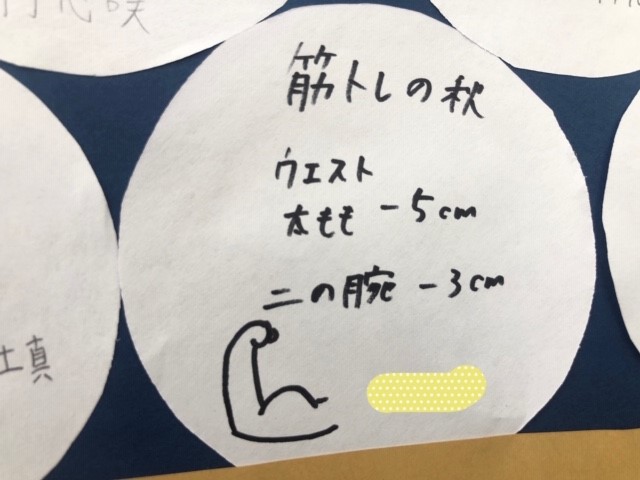 筋トレの秋
ウエスト
太もも -5cm
二の腕 -3cm
真